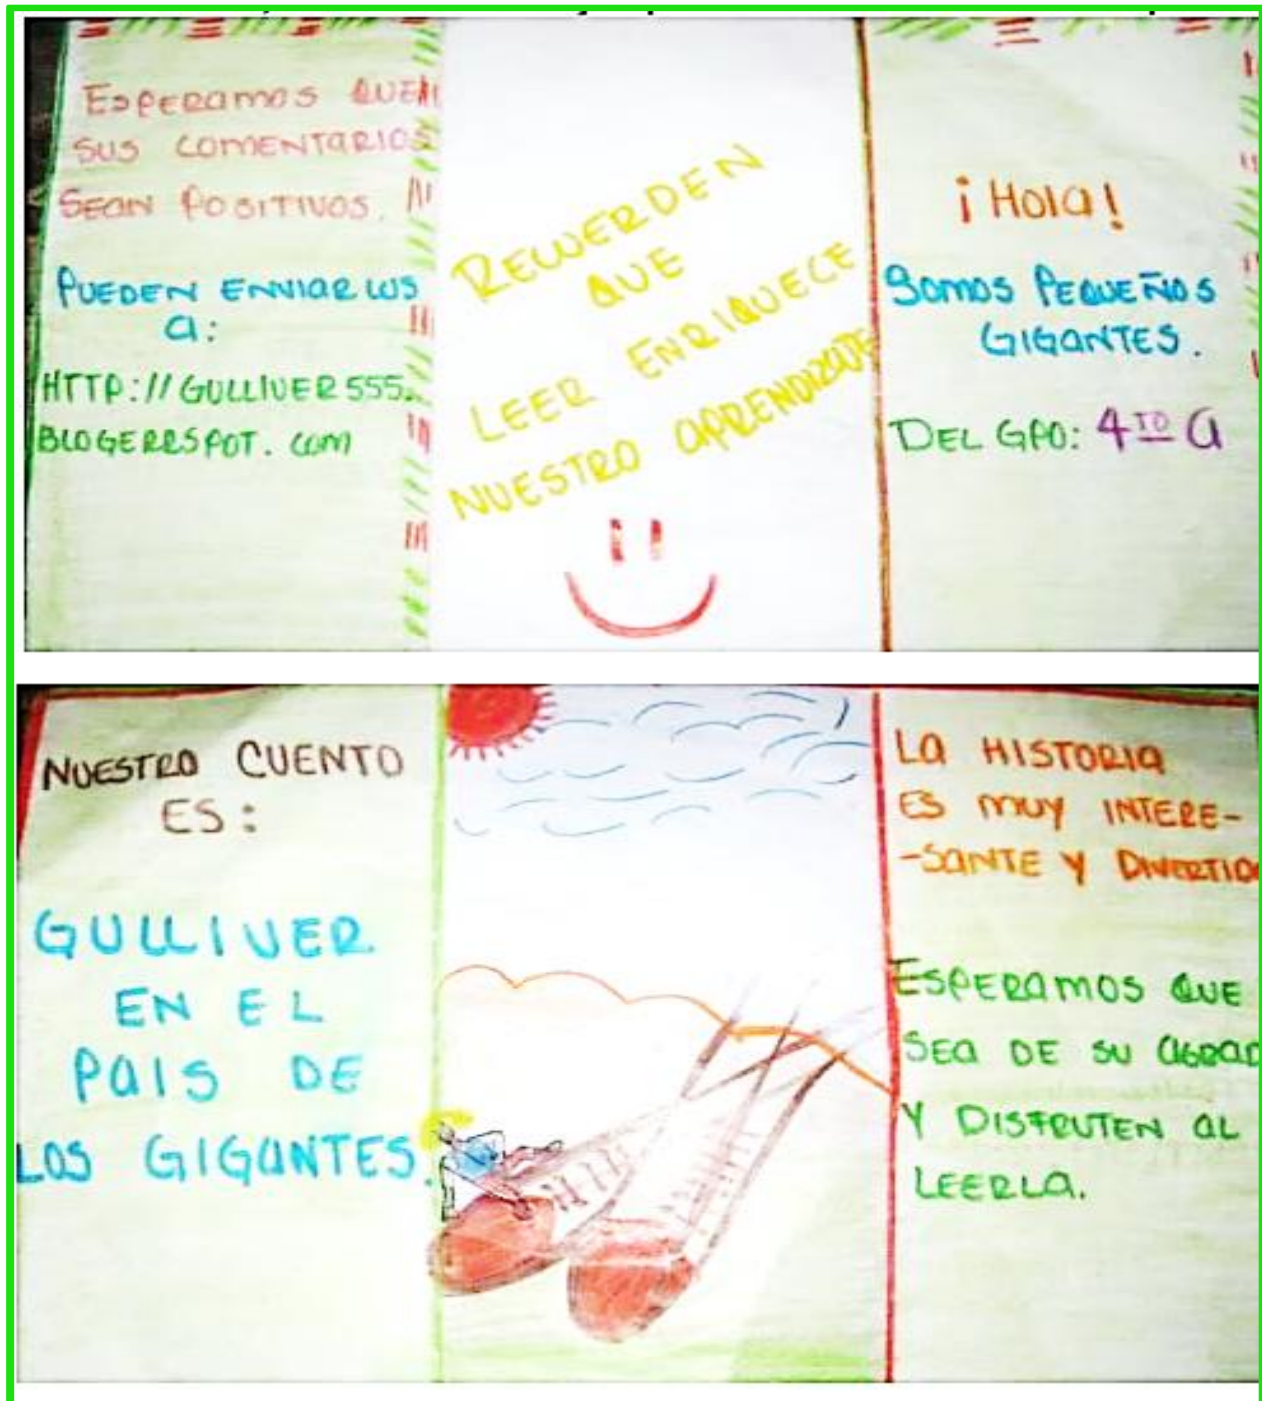 ESPERAMOS QUE
SUS COMENTARIOS
SEAN POSITIVOS.
PUEDEN ENVIARLOS
A:
HTTP://GULLIVER555.
BLOGERRSPOT.COM
RECUERDEN
QUE
LEER ENRIQUECE
NUESTRO APRENDIZAJE
¡HOLA!
SOMOS PEQUEÑOS
GIGANTES.
DEL GPO: 4TO A
NUESTRO CUENTO
ES:
GULLIVER
EN EL
PAIS DE
LOS GIGANTES.
LA HISTORIA
ES MUY INTERE-
-SANTE Y DIVERTID
ESPERAMOS QUE
SEA DE SU AGRAD
Y DISFRUTEN AL
LEERLA.